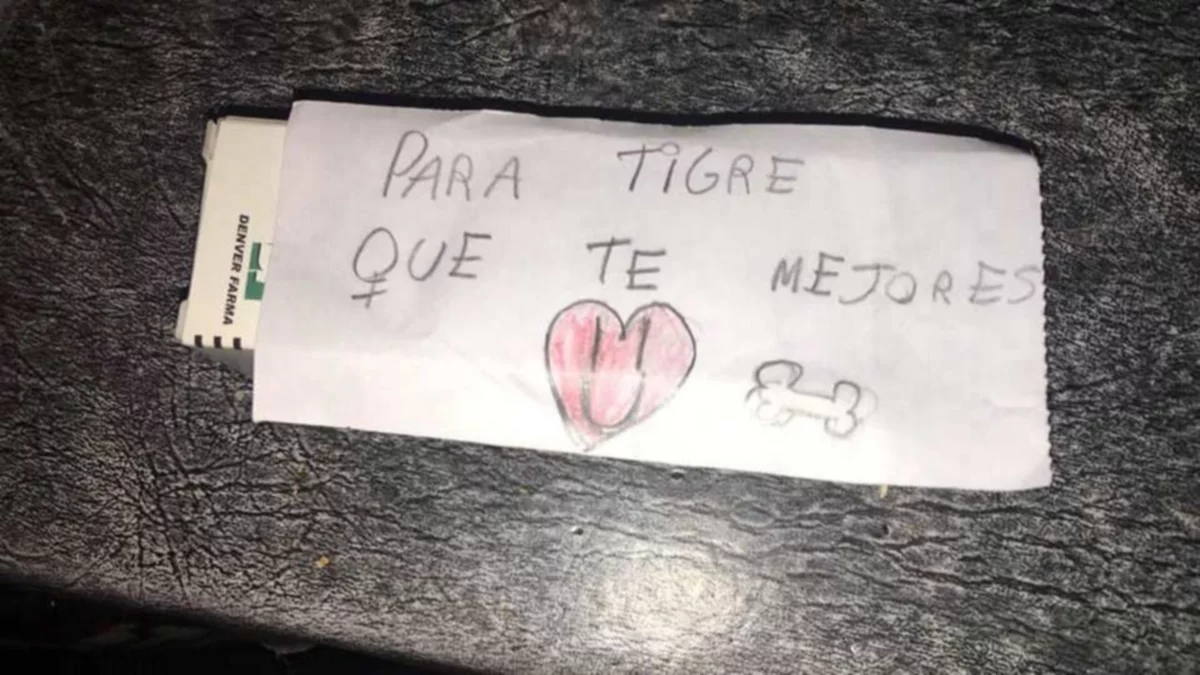 PARA TIGRE
QUE TE MEJORES
U
DENVER FARMA